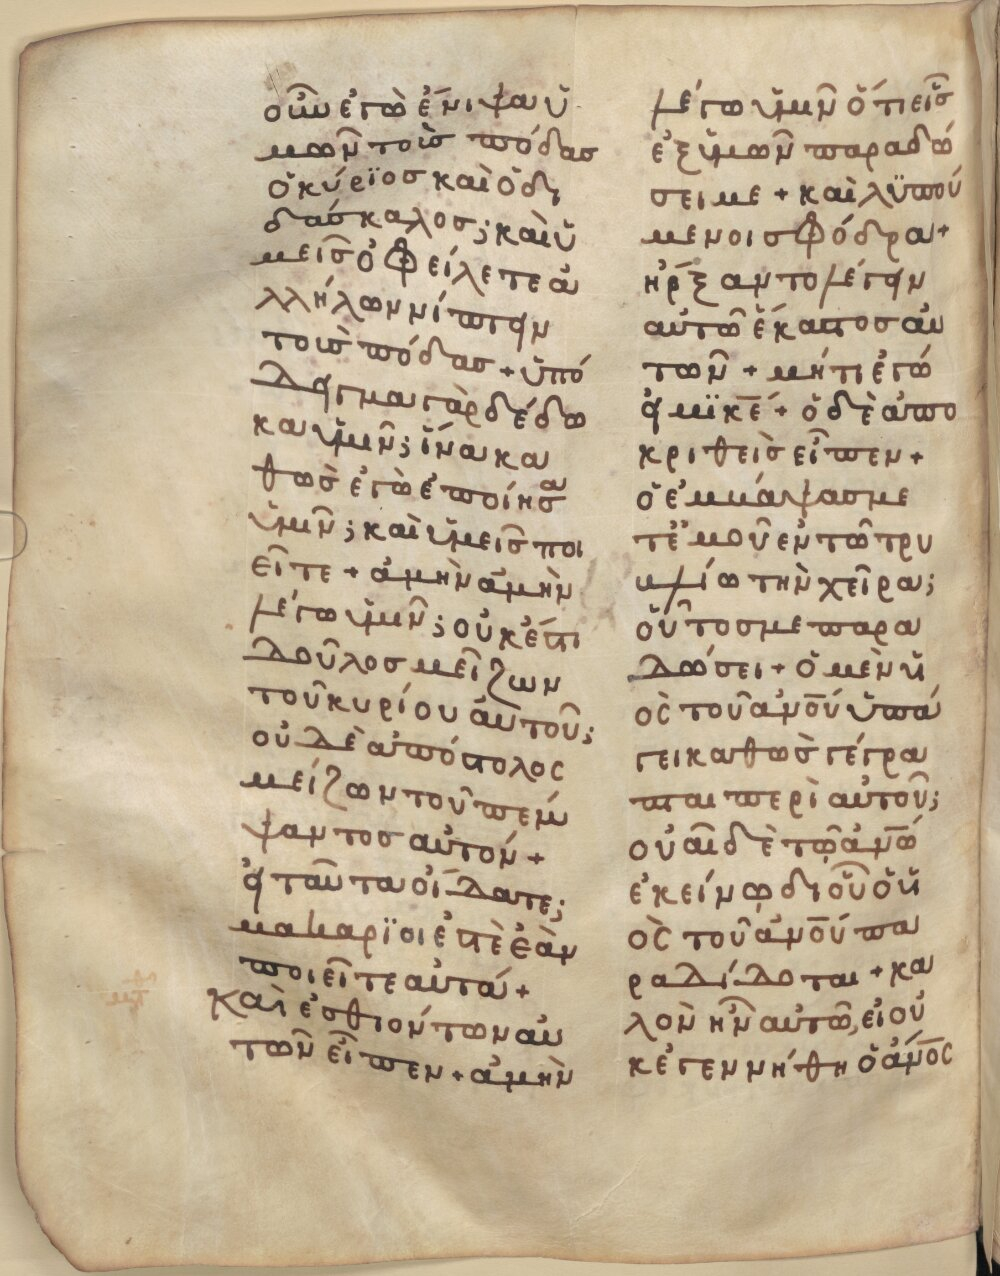 οὖν ἐγὼ ἔνιψα ὑ
μῶν τοὺσ πόδασ
ὁ κύρϊοσ καὶ ὁ δι
δάσκαλοσ; καὶ ὑ
μεῖσ ὀφείλετε ἀ
λλήλων νίπτειν
τοὺσ πόδασ + ὑπό
δειγμα γὰρ δέδω
κα ὑμῖν; ἵνα κα
θὼσ ἐγὼ ἐποίησα
ὑμῖν; καὶ ὑμεῖσ ποι
εῖτε + ἀμὴν ἀμὴν
λέγω ὑμῖν; οὐκ ἔστι
δοῦλοσ μεῖζων
τοῦ κυρίου αὐτοῦ;
οὐδὲ ἀπόστολοσ
μείζων τοῦ πέμ
ψαντοσ αὐτόν +
εἰ ταῦτα οἴδατε;
μακαρϊοι ἐστὲ ἐὰν
ποιεῖτε αὐτά +
Καὶ ἐσθιόντων αὐ
τῶν εἶπεν + ἀμὴν
λέγω ὑμῖν ὅτι εἷσ
ἐξ ὑμῶν παραδώ
σει με + καὶ λϋπού
μενοι σφόδρα +
ἤρξαντο λέγειν
αὐτῶ ἕκαστοσ αὐ
τῶν + μήτι ἐγώ
εἰμϊ κ̅ε̅ + ὁ δὲ ἀπο
κριθεὶσ εἶπεν +
ὁ ἐμβάψασ με
τ' ἐμοῦ ἐν τῶ τρυ
βλίω τὴν χεῖρα;
οὗτοσ με παρα
δώσει + ὁ μὲν υἱ
ὸσ τοῦ ἀ̅ν̅ο̅υ̅ ὑπά
γει καθὼσ γέγρα
πται περὶ αὐτοῦ;
οὐαὶ δὲ τῷ ἀ̅ν̅ω̅
ἐκείνῳ δι οὗ ὁ υἱ
ὸσ τοῦ ἀ̅ν̅ο̅υ̅ πα
ραδίδοται + κα
λὸν ἦν αὐτῶ, εἰ οὐ
κ ἐγεννήθη ὁ ἀ̅ν̅ο̅σ̅